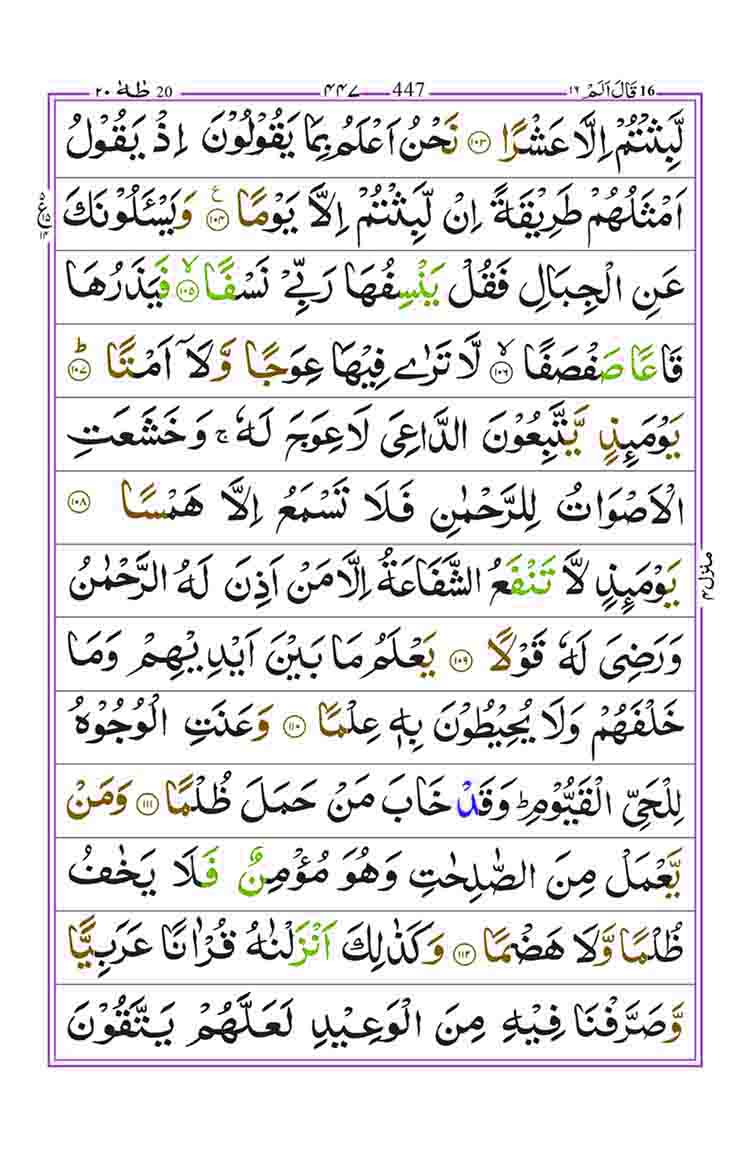 قَالَ اَلَمْ ١٦ 16 447 ٤٤٧ 20 طٰهٰ ٢٠
لَّبِثْتُمْ اِلَّا عَشْرًا ﴿١٠٣﴾ نَحْنُ اَعْلَمُ بِمَا يَقُوْلُوْنَ اِذْ يَقُوْلُ
اَمْثَلُهُمْ طَرِيْقَةً اِنْ لَّبِثْتُمْ اِلَّا يَوْمًا ﴿١٠٤﴾ ع وَيَسْـَٔلُوْنَكَ
ع ٥ ١٥ ١٤
عَنِ الْجِبَالِ فَقُلْ يَنْسِفُهَا رَبِّىْ نَسْفًا ۙ﴿١٠٥﴾ فَيَذَرُهَا
قَاعًا صَفْصَفًا ۙ﴿١٠٦﴾ لَّا تَرٰى فِيْهَا عِوَجًا وَّلَاۤ اَمْتًا ؕ﴿١٠٧﴾
يَوْمَٮِٕذٍ يَّتَّبِعُوْنَ الدَّاعِىَ لَا عِوَجَ لَهٗ ۚ وَخَشَعَتِ
الْاَصْوَاتُ لِلرَّحْمٰنِ فَلَا تَسْمَعُ اِلَّا هَمْسًا ﴿١٠٨﴾
يَوْمَٮِٕذٍ لَّا تَنْفَعُ الشَّفَاعَةُ اِلَّا مَنْ اَذِنَ لَهُ الرَّحْمٰنُ
منزل ٤
وَرَضِىَ لَهٗ قَوْلًا ﴿١٠٩﴾ يَعْلَمُ مَا بَيْنَ اَيْدِيْهِمْ وَمَا
خَلْفَهُمْ وَلَا يُحِيْطُوْنَ بِهٖ عِلْمًا ﴿١١٠﴾ وَعَنَتِ الْوُجُوْهُ
لِلْحَىِّ الْقَيُّوْمِ ؕ وَقَدْ خَابَ مَنْ حَمَلَ ظُلْمًا ﴿١١١﴾ وَمَنْ
يَّعْمَلْ مِنَ الصّٰلِحٰتِ وَهُوَ مُؤْمِنٌ فَلَا يَخٰفُ
ظُلْمًا وَّلَا هَضْمًا ﴿١١٢﴾ وَكَذٰلِكَ اَنْزَلْنٰهُ قُرْاٰنًا عَرَبِيًّا
وَّصَرَّفْنَا فِيْهِ مِنَ الْوَعِيْدِ لَعَلَّهُمْ يَتَّقُوْنَ